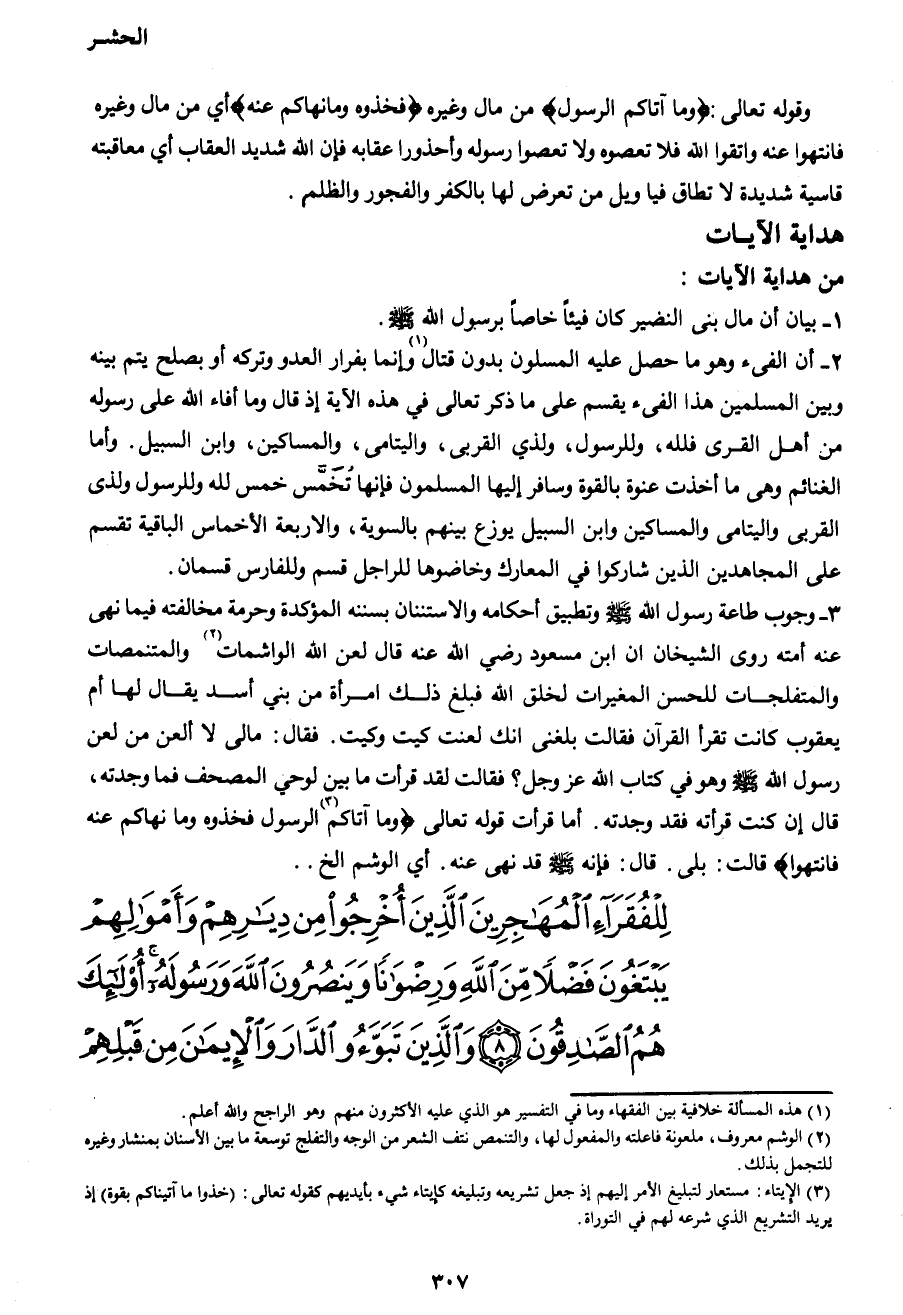 الحشر
وقوله تعالى :﴿وما آتاكم الرسول﴾ من مال وغيره ﴿فخذوه ومانهاكم عنه﴾أي من مال وغيره
فانتهوا عنه واتقوا الله فلا تعصوه ولا تعصوا رسوله وأحذورا عقابه فإن الله شديد العقاب أي معاقبته
قاسية شديدة لا تطاق فيا ويل من تعرض لها بالكفر والفجور والظلم .
هداية الآيـات
من هداية الآيات :
١ـ بيان أن مال بنى النضير كان فيئاً خاصاً برسول الله ﷺ .
٢ـ أن الفىء وهو ما حصل عليه المسلون بدون قتال(١) وإنما بفرار العدو وتركه أو بصلح يتم بينه
وبين المسلمين هذا الفىء يقسم على ما ذكر تعالى في هذه الآية إذ قال وما أفاء الله على رسوله
من أهـل القـرى فلله، وللرسول، ولذي القربى، واليتامى، والمساكين، وابن السبيل. وأما
الغنائم وهى ما أخذت عنوة بالقوة وسافر إليها المسلمون فإنها تُخَمَّس خمس لله وللرسول ولذى
القربى واليتامى والمساكين وابن السبيل يوزع بينهم بالسوية، والاربعة الأخماس الباقية تقسم
على المجاهدين الذين شاركوا في المعارك وخاضوها للراجل قسم وللفارس قسمان.
٣ـ وجوب طاعة رسول الله ﷺ وتطبيق أحكامه والاستنان بسننه المؤكدة وحرمة مخالفته فيما نهى
عنه أمته روى الشيخان ان ابن مسعود رضي الله عنه قال لعن الله الواشمات(٢) والمتنمصات
والمتفلجـات للحسن المغيرات لخلق الله فبلغ ذلـك امـرأة من بني أسـد يقـال لهـا أم
يعقوب كانت تقرأ القرآن فقالت بلغنى انك لعنت كيت وكيت. فقال: مالى لا ألعن من لعن
رسول الله ﷺ وهو في كتاب الله عز وجل؟ فقالت لقد قرأت ما بين لوحي المصحف فما وجدته،
قال إن كنت قرأته فقد وجدته. أما قرأت قوله تعالى ﴿وما آتاكم(٣) الرسول فخذوه وما نهاكم عنه
فانتهوا﴾ قالت: بلى. قال: فإنه ﷺ قد نهى عنه. أي الوشم الخ . .
لِلْفُقَرَآءِ ٱلْمُهَـٰجِرِينَ ٱلَّذِينَ أُخْرِجُوا۟ مِن دِيَـٰرِهِمْ وَأَمْوَٰلِهِمْ
يَبْتَغُونَ فَضْلًا مِّنَ ٱللَّهِ وَرِضْوَٰنًا وَيَنصُرُونَ ٱللَّهَ وَرَسُولَهُۥٓ ۚ أُو۟لَـٰٓئِكَ
هُمُ ٱلصَّـٰدِقُونَ ﴿٨﴾ وَٱلَّذِينَ تَبَوَّءُو ٱلدَّارَ وَٱلْإِيمَـٰنَ مِن قَبْلِهِمْ
(١) هذه المسألة خلافية بين الفقهاء وما في التفسير هو الذي عليه الأكثرون منهم وهو الراجح والله أعلم.
(٢) الوشم معروف، ملعونة فاعلته والمفعول لها، والتنمص نتف الشعر من الوجه والتفلج توسعة ما بين الأسنان بمنشار وغيره
للتجمل بذلك.
(٣) الإيتاء: مستعار لتبليغ الأمر إليهم إذ جعل تشريعه وتبليغه كإيتاء شيء بأيديهم كقوله تعالى: (خذوا ما آتيناكم بقوة) إذ
يريد التشريع الذي شرعه لهم في التوراة.
٣٠٧